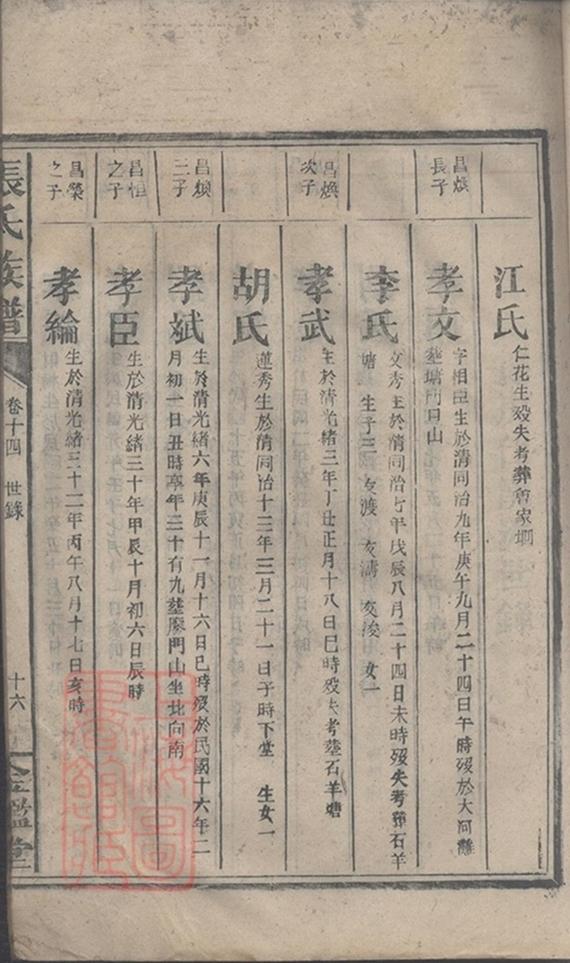 江氏
仁花生歿失考葬會家壩
昌煥
長子
孝文
字相臣生於清同治九年庚午九月二十四日午時歿於大河灘
葬塘門口山
李氏
文秀生於清同治七年戊辰八月二十四日未時歿失考葬石羊
塘 生子三 友渡 友濤 友浚 女一
昌煥
次子
孝武
生於清光緒三年丁丑正月十八日巳時歿失考葬石羊塘
胡氏
蓮秀生於清同治十三年三月二十一日子時下堂 生女一
昌煥
三子
孝斌
生於清光緒六年庚辰十一月十六日巳時歿於民國十六年二
月初一日丑時享年三十有九葬廖門山坐北向南
昌恒
之子
孝臣
生於清光緒三十年甲辰十月初六日辰時
昌榮
之子
孝綸
生於清光緒三十二年丙午八月十七日亥時
張氏族譜
卷十四 世錄
十六
金鑑堂